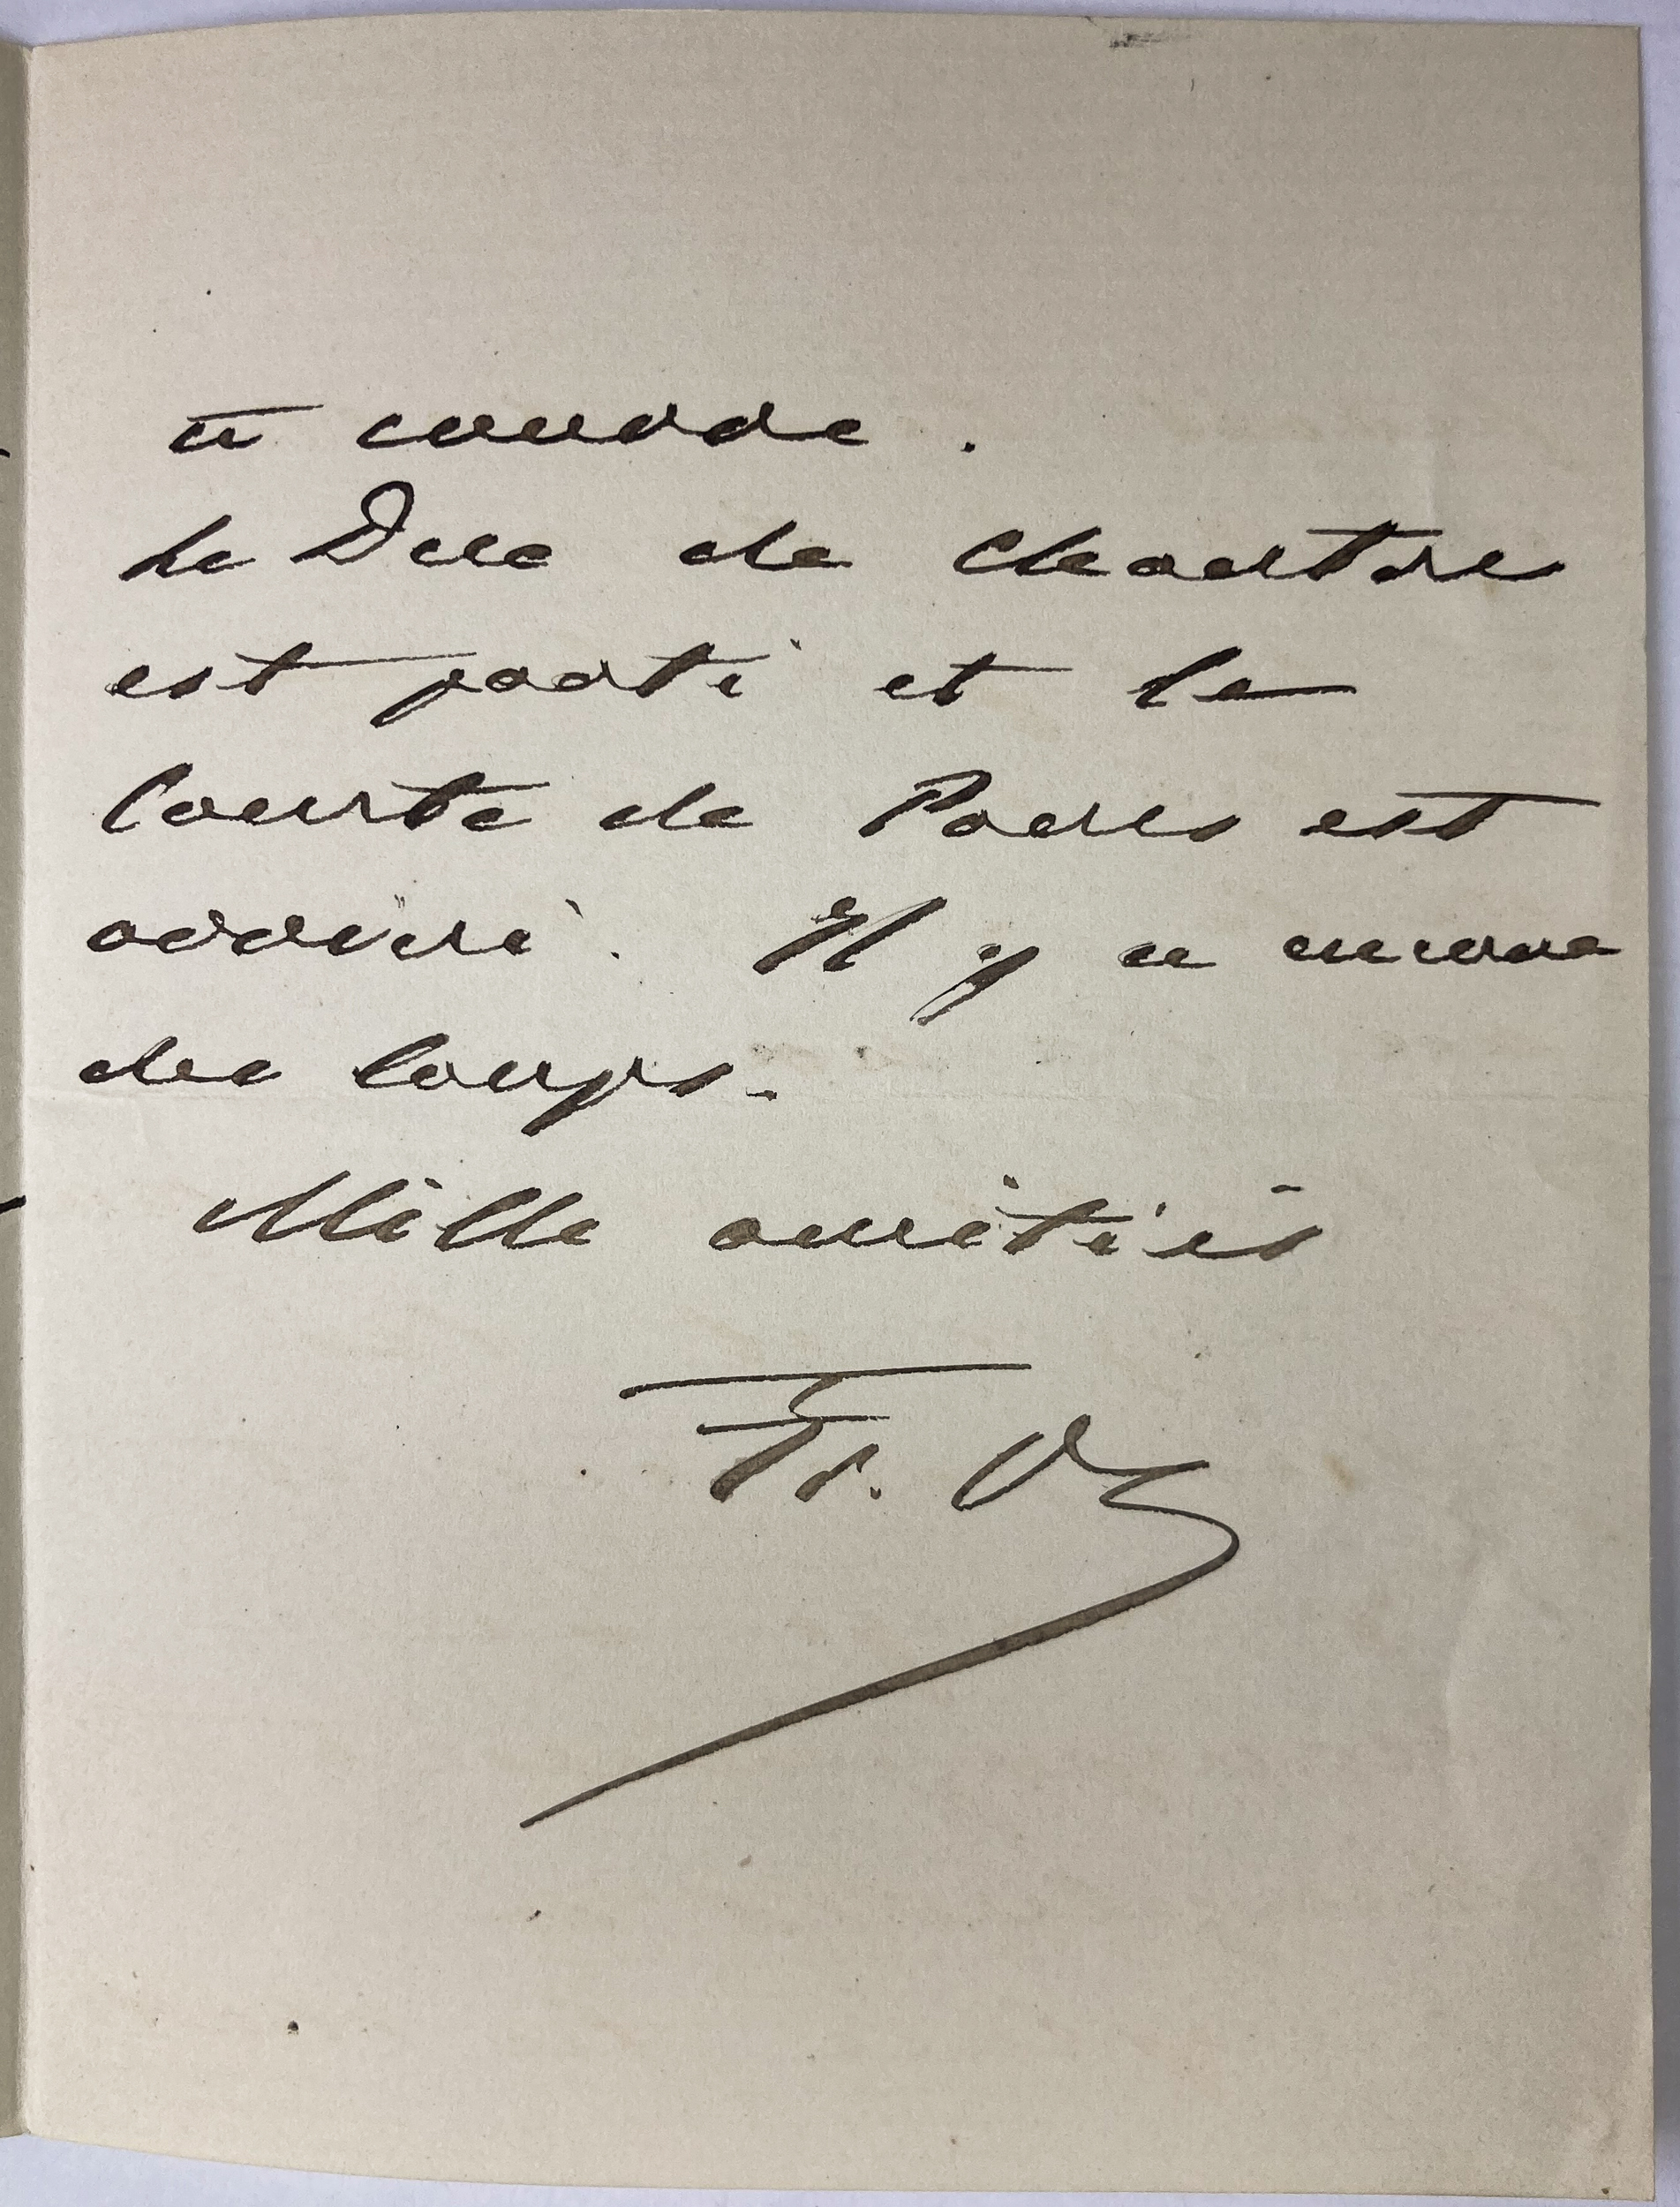 à mordre.
Le Duc de Chartres
est parti et le
Comte de Paris est
arrivé. Il y a encore
des loups.
Mille amitiés
Fr. O